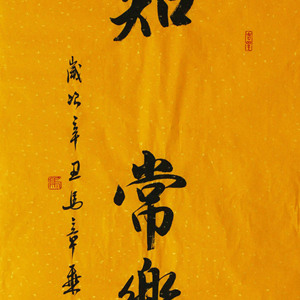 知常樂
歲次辛丑馬章乘